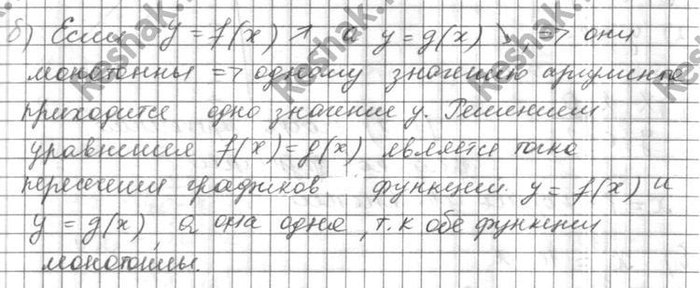 б) Если y = f(x) ↗, а y = g(x) ↘, => они
монотонны => одному значению аргумента
приходится одно значение y. Решением
уравнения f(x) = g(x) является точка
пересечения графиков функции y = f(x) и
y = g(x), а она одна, т.к обе функции
монотонны.